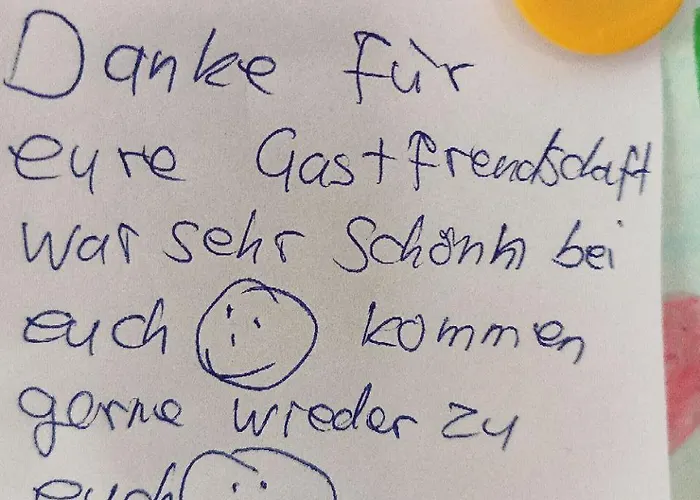 Danke für
eure Gastfrendschaft
war sehr schönn bei
euch
kommen
gerne wieder zu
euch